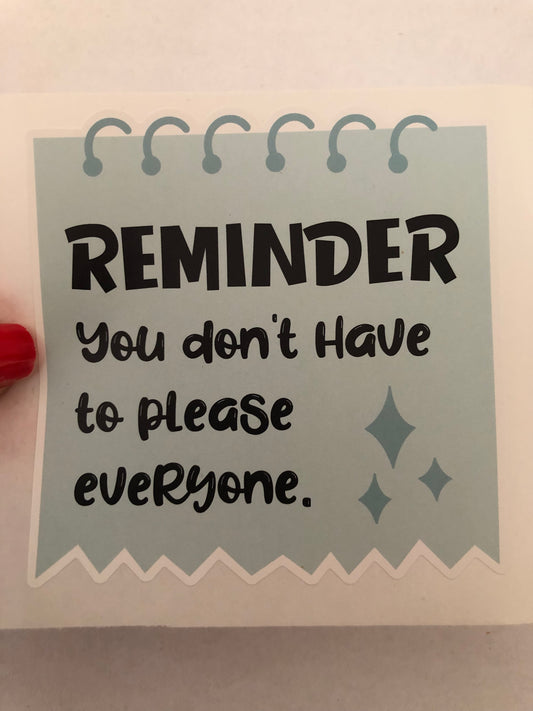 REMINDER
You don't Have
to please
eveRyone.